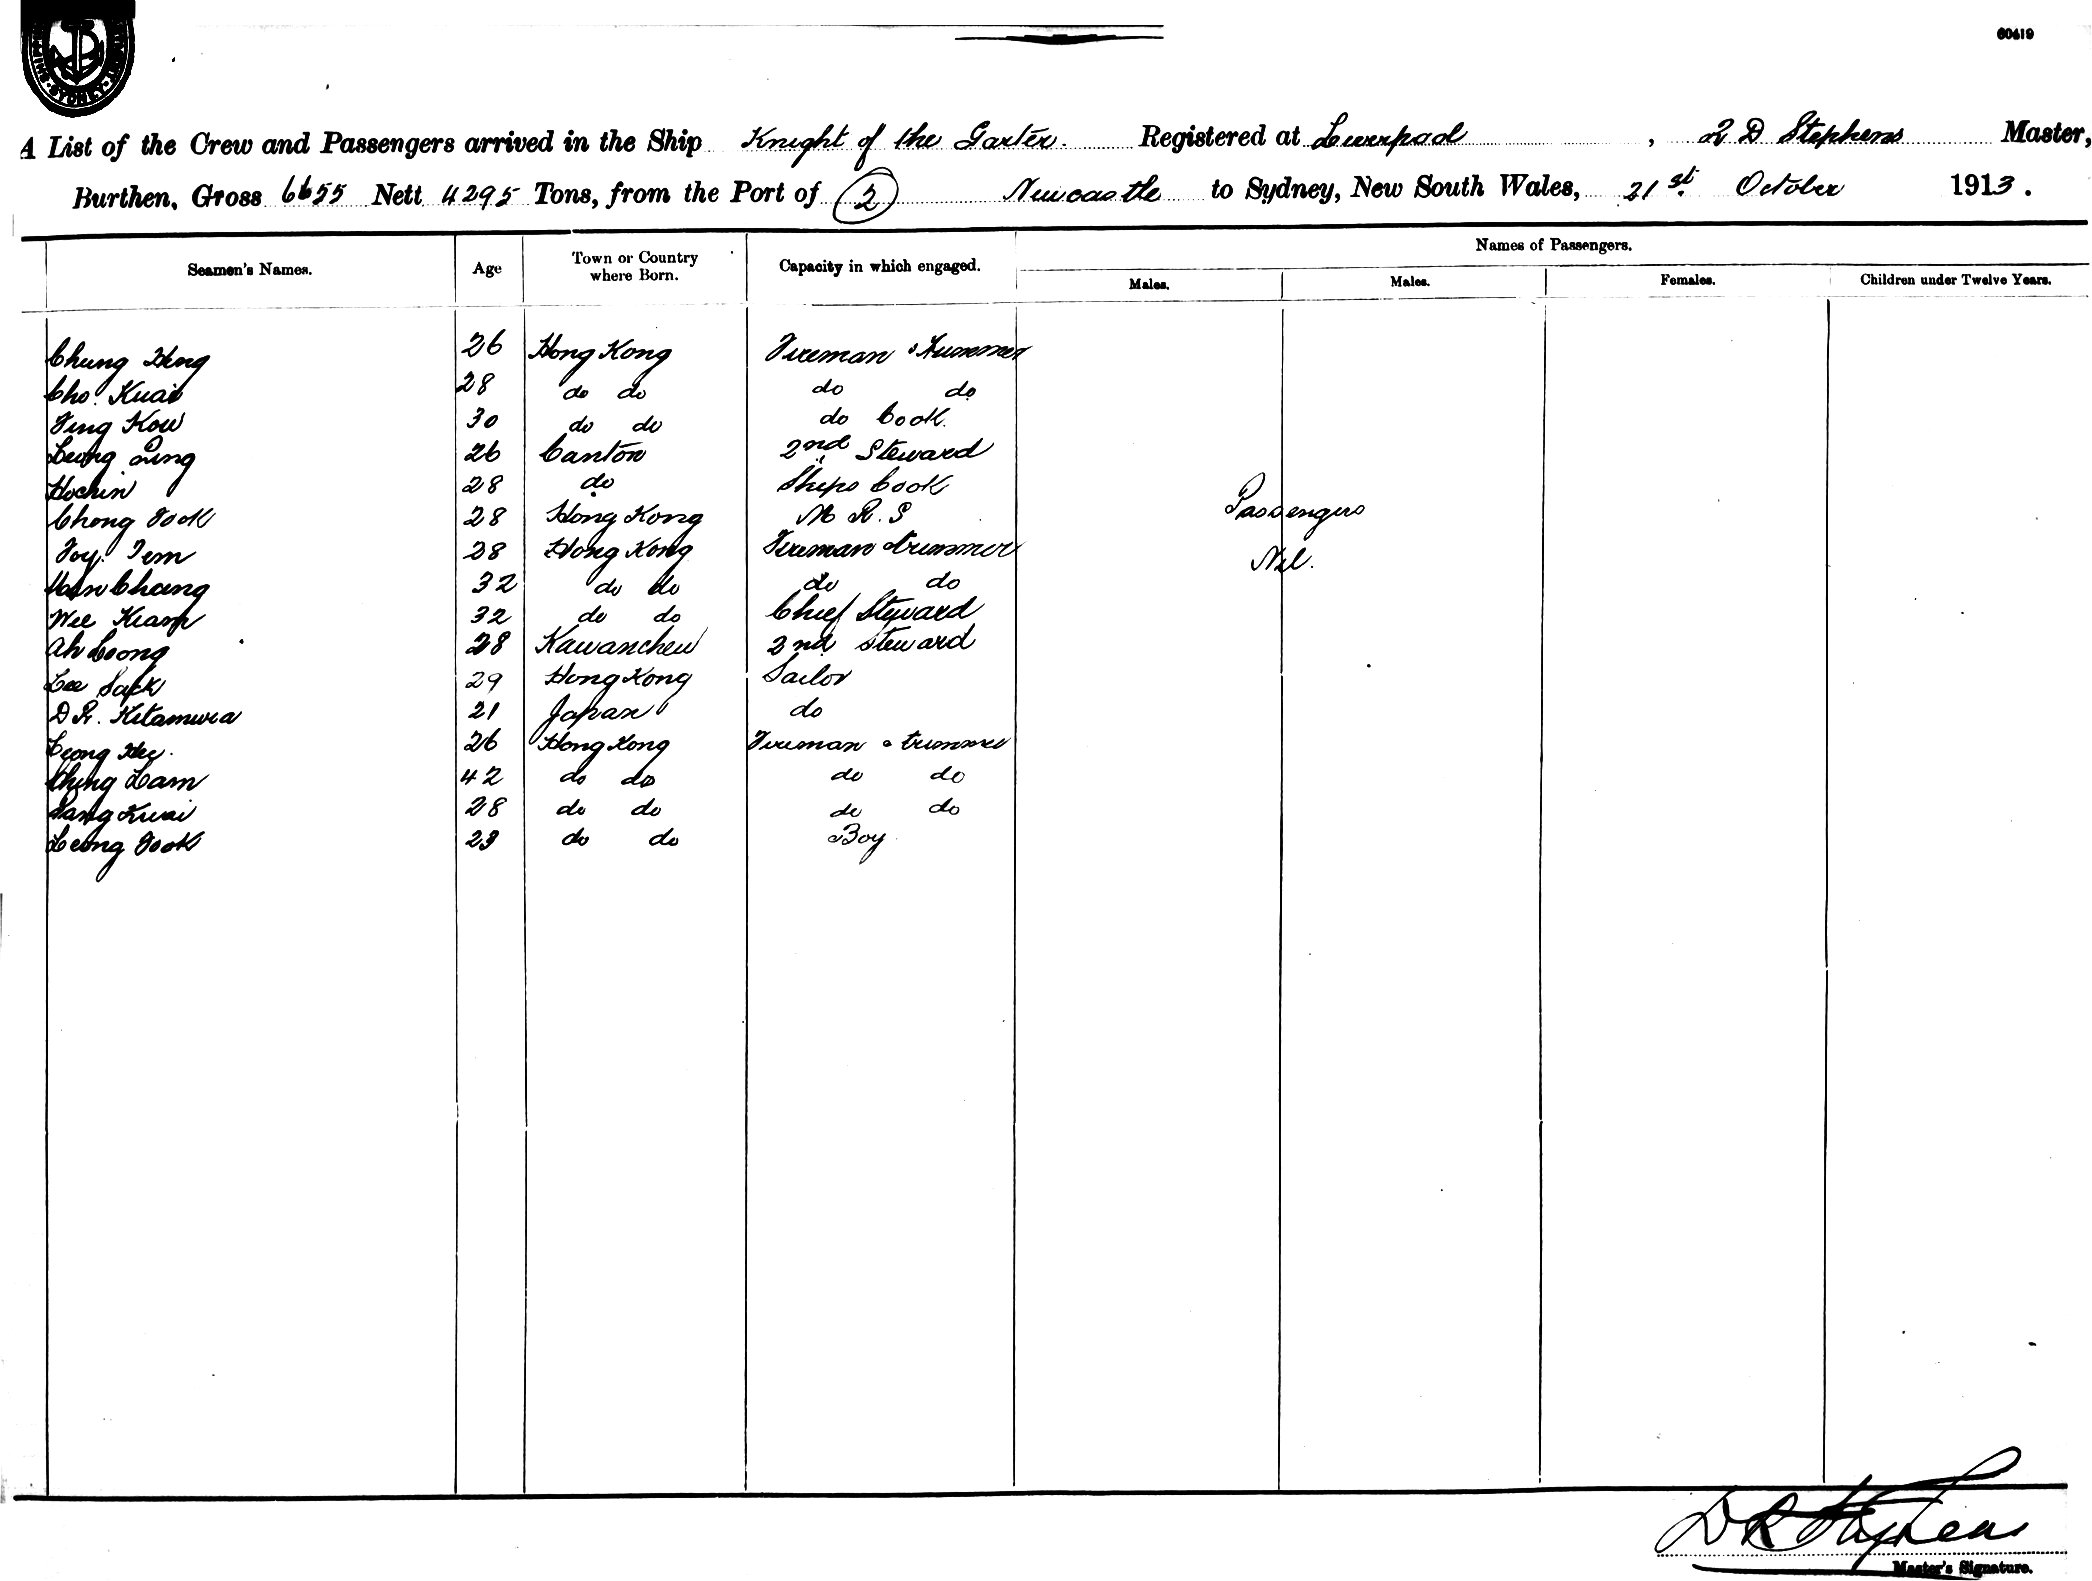 SYDNEY
60419
A List of the Crew and Passengers arrived in the Ship Knight of the Garter. Registered at Liverpool, D Stephens Master,
Burthen, Gross 6655 Nett 4295 Tons, from the Port of (2) Newcastle to Sydney, New South Wales, 21st October 1913.
Seamen's Names. Age Town or Country where Born. Capacity in which engaged. Names of Passengers.
Males. Males. Females. Children under Twelve Years.
Chung Heng 26 Hong Kong Fireman & Trimmer
Cho Kuai 28 do do do do
Ting Kow 30 do do do Cook
Leong 26 Canton 2nd Steward
Hochin 28 do Ships Cook
Chong Fook 28 Hong Kong M R. S
Foy Tem 28 Hong Kong Fireman & trimmer
Chang 32 do do do do
Wee Kiam 32 do do Chief Steward
Ah Loong 28 Kawancheu 2nd Steward
Lee Sack 29 Hong Kong Sailor
D R. Kitamura 21 Japan do
Leong Hee 26 Hong Kong Fireman & trimmer
Ching Lam 42 do do do do
Sang Kwai 28 do do do do
Leong Fook 23 do do Boy
Passengers
Nil.
D R Stephens
Master's Signature.